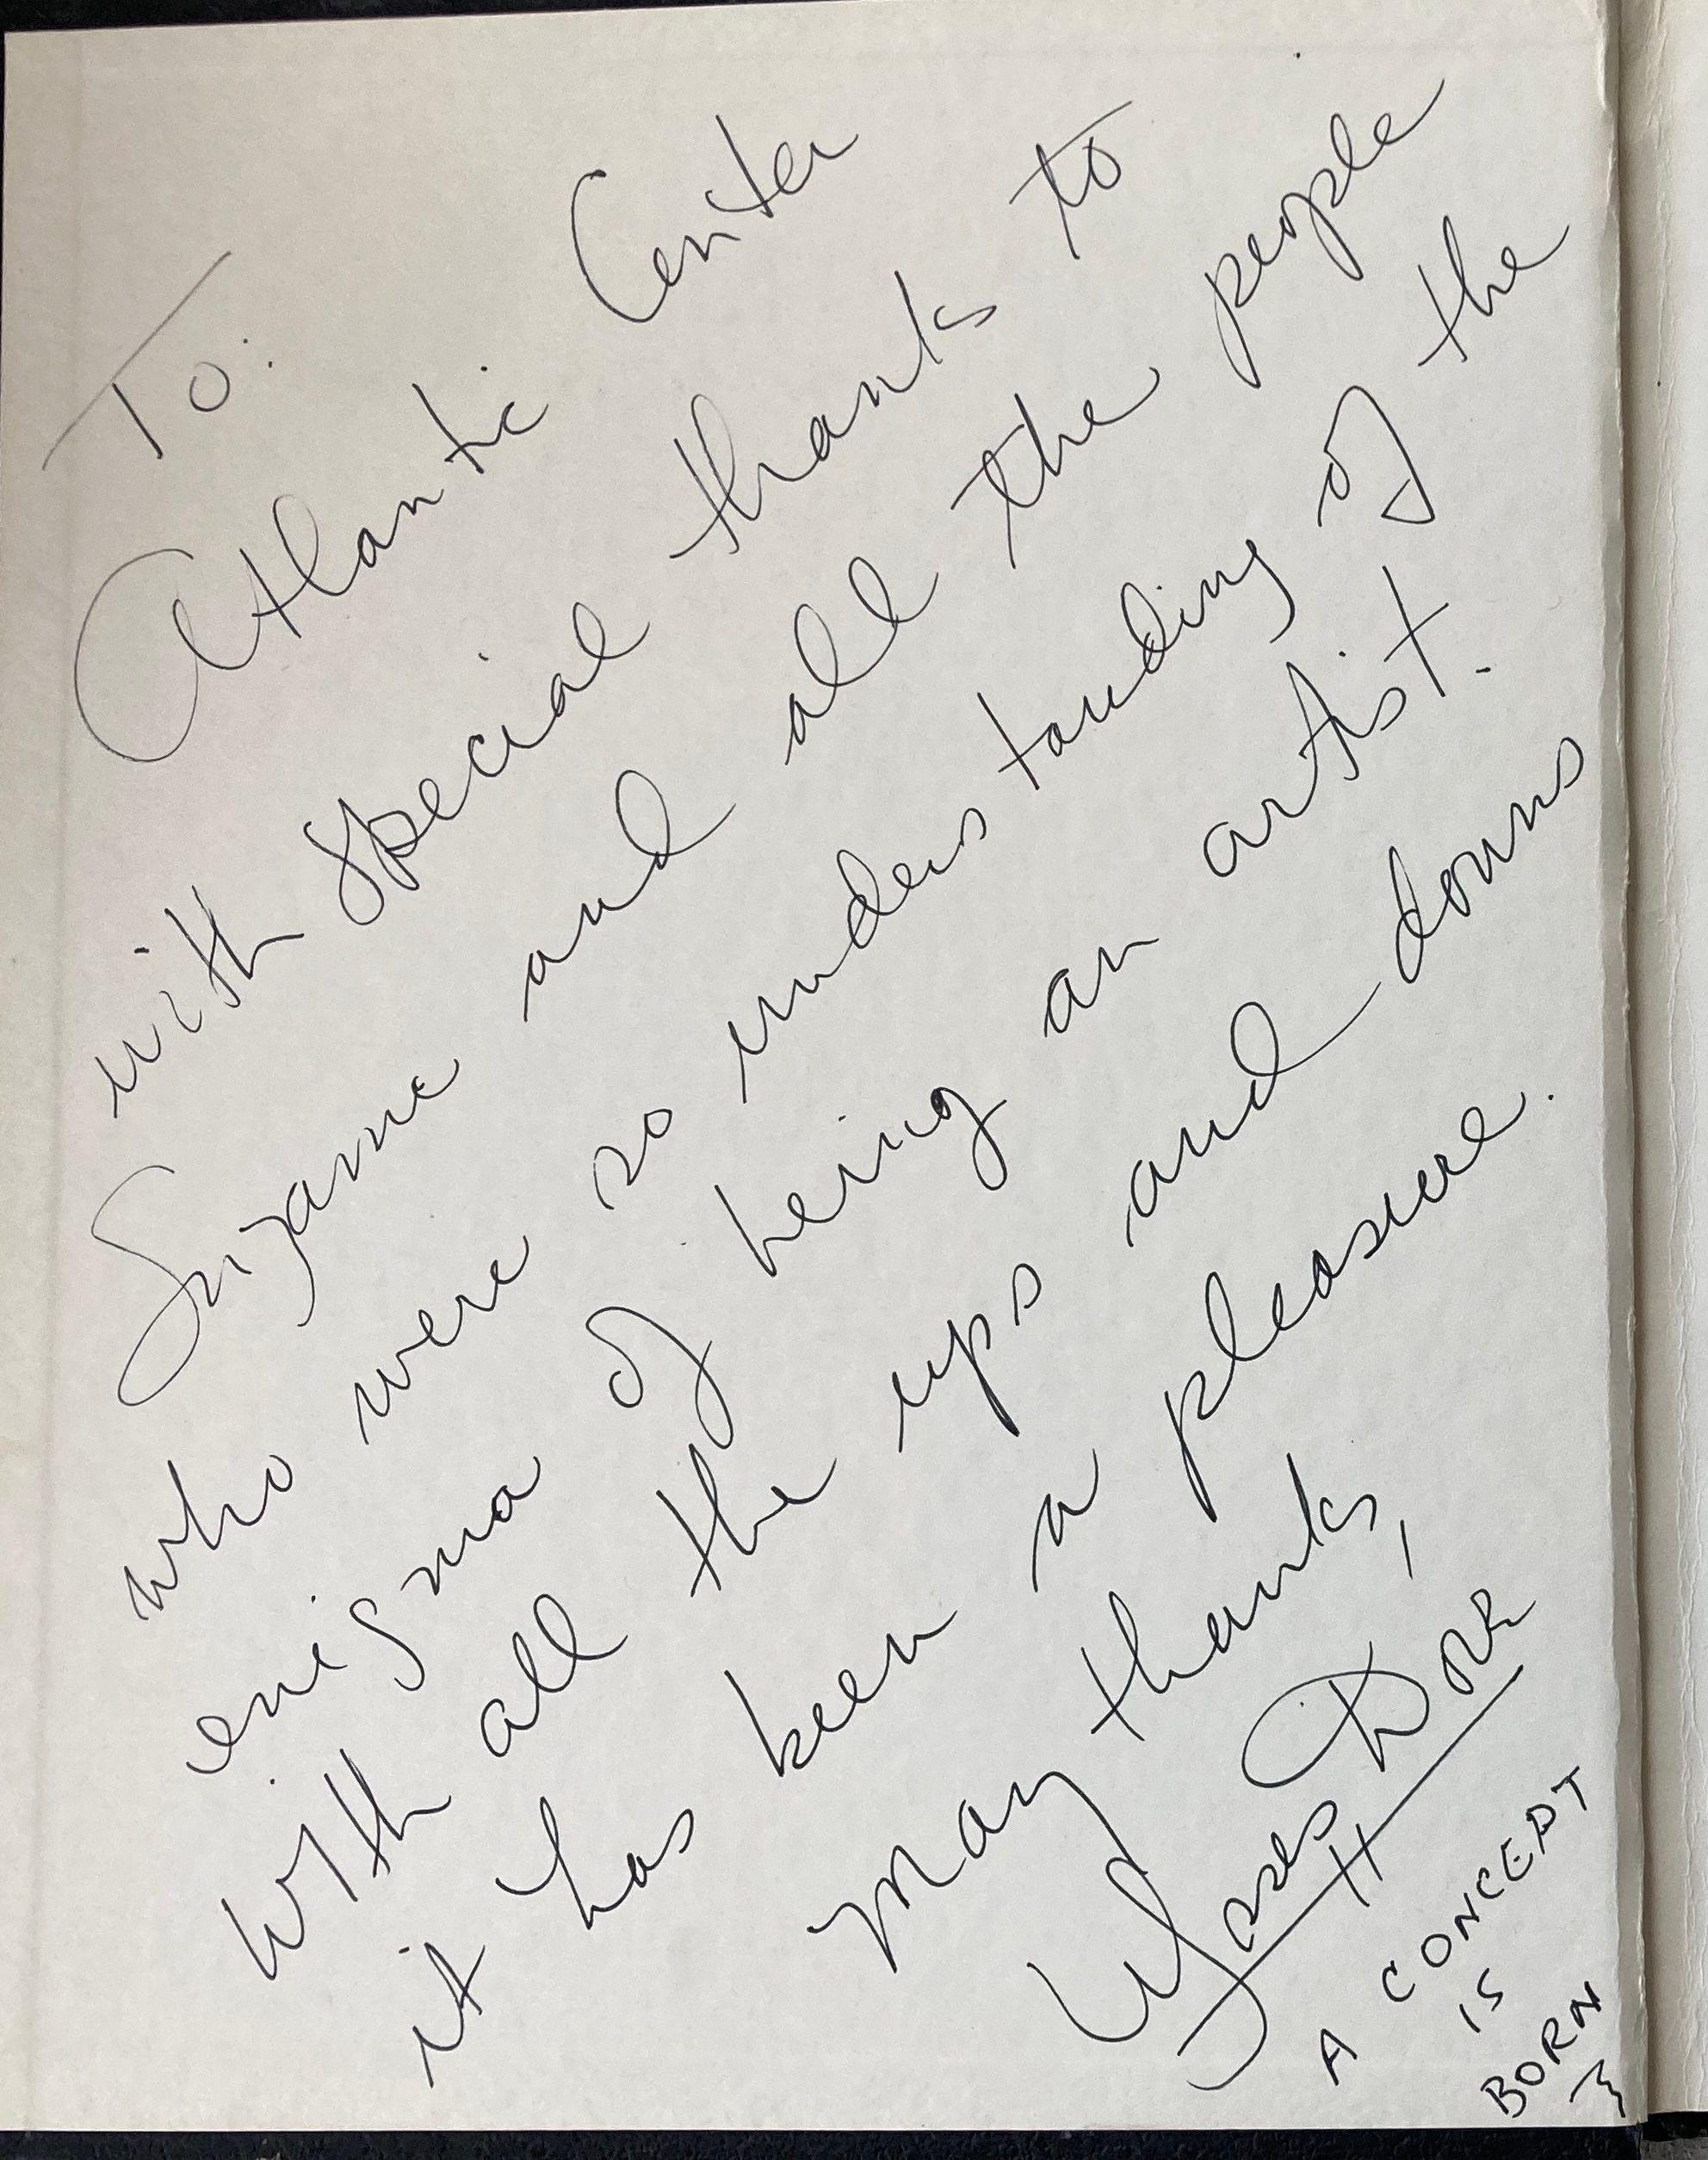 To:
Atlantic Center
with special thanks to
Suzanne and all the people
who were so understanding of the
enigma of being an artist.
With all the ups and downs
it has been a pleasure.
Many thanks,
A CONCEPT
IS
BORN